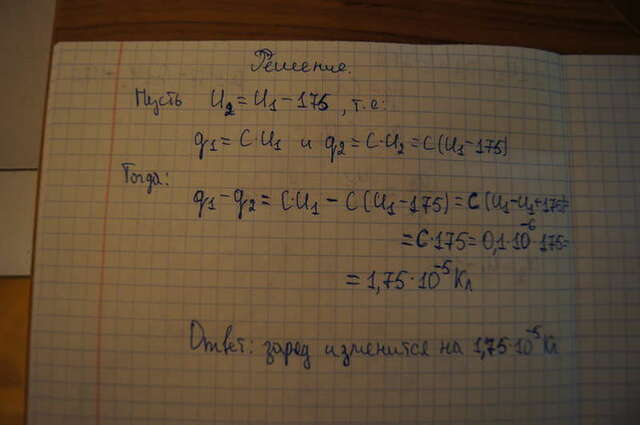 Решение.
Пусть U₂ = U₁ - 175, т.е:
q₁ = C·U₁ и q₂ = C·U₂ = C(U₁-175)
Тогда:
q₁ - q₂ = C·U₁ - C(U₁-175) = C(U₁-U₁+175)=
= C·175 = 0,1·10⁻⁶·175=
= 1,75·10⁻⁵ Кл
Ответ: заряд изменится на 1,75·10⁻⁵ Кл